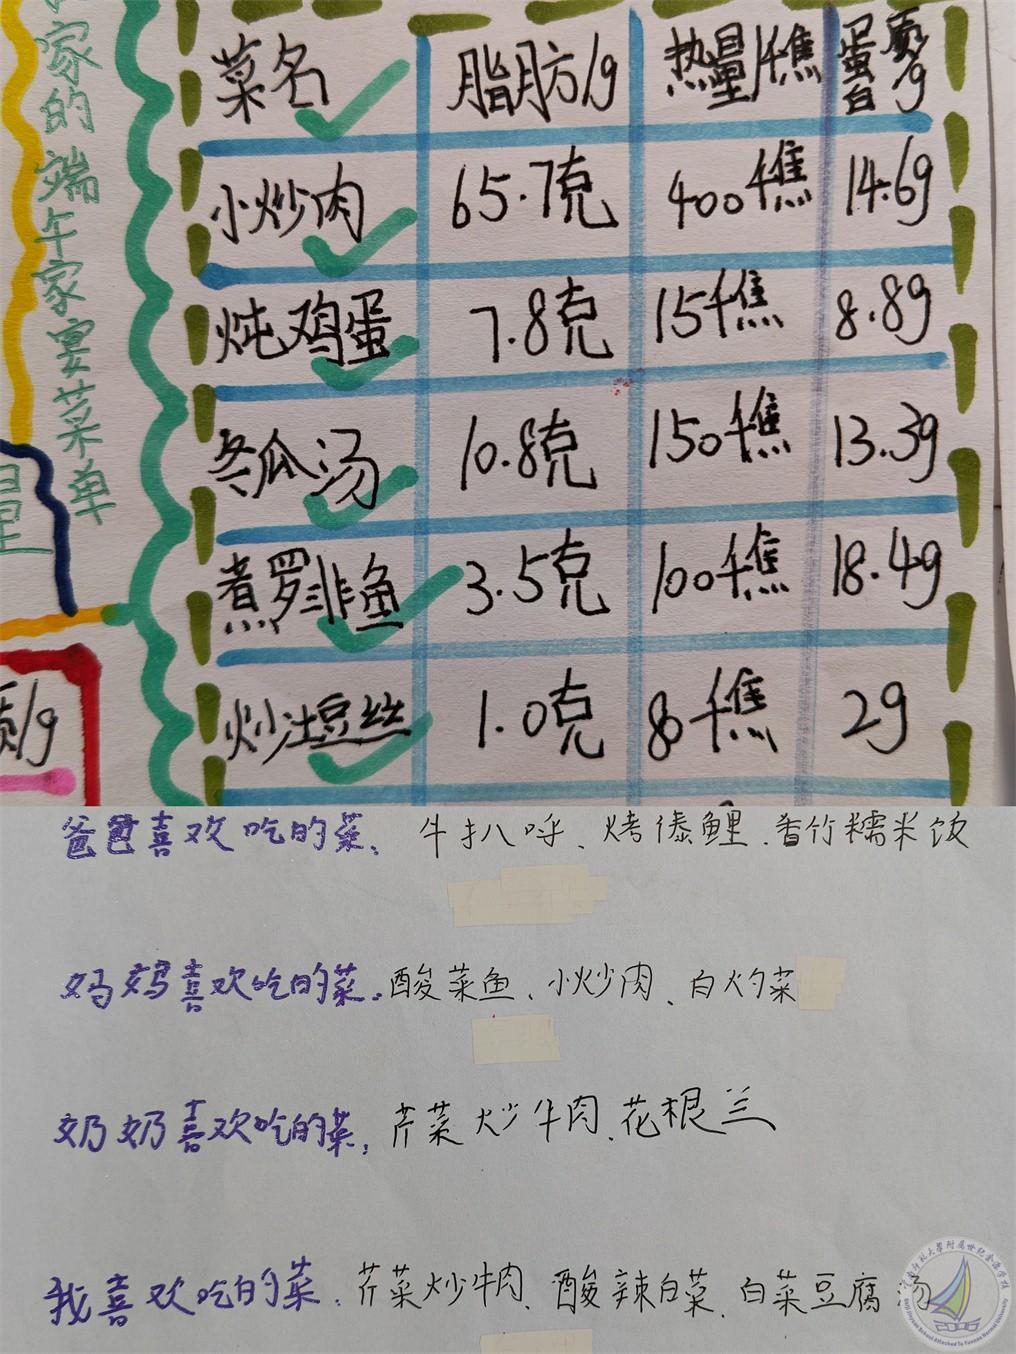 家的端午家宴菜单
量
质/g
菜名 脂肪/g 热量/千焦 蛋白质/g
小炒肉 65.7克 400千焦 14.6g
炖鸡蛋 7.8克 15千焦 8.8g
冬瓜汤 10.8克 150千焦 13.3g
煮罗非鱼 3.5克 100千焦 18.4g
炒土豆丝 1.0克 80千焦 2g
爸爸喜欢吃的菜、牛扒呼、烤傣鲤、香竹糯米饭
妈妈喜欢吃的菜。酸菜鱼、小炒肉、白灼菜
奶奶喜欢吃的菜,芹菜炒牛肉、花根兰
我喜欢吃的菜.芹菜炒牛肉、酸辣白菜、白菜豆腐汤